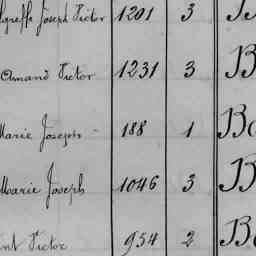 Joseph Victor 1201 3
Amand Victor 1231 3 B
Marie Joseph 188 1 Bo
Marie Joseph 1046 3 B
Victor 954 2 Bo